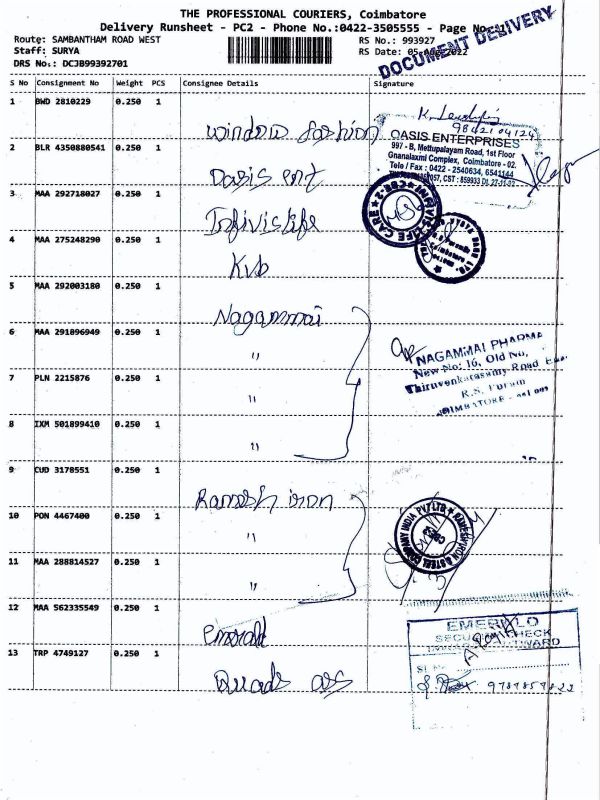 THE PROFESSIONAL COURIERS, Coimbatore
Delivery Runsheet - PC2 - Phone No.:0422-3505555 - Page No.:1
Route: SAMBANTHAM ROAD WEST
RS No.: 993927
Staff: SURYA
RS Date: 05-Aug-2022
DRS No.: DCJB99392701
DOCUMENT DELIVERY
S No Consignment No Weight PCS Consignee Details Signature
1 BWD 2810229 0.250 1 Window fashion
9842104124
2 BLR 4350880541 0.250 1 Oasis ent
OASIS ENTERPRISES
997 - B, Mettupalayam Road, 1st Floor
Gnanalaxmi Complex, Coimbatore - 02.
Tele / Fax : 0422 - 2540634, 6541144
CST : 859933 Dt. 27-11-02
3 MAA 292718027 0.250 1 Infivislife
INFIVIS LIFE CARE
CBE-2
4 MAA 275248290 0.250 1 Kvb
5 MAA 292003180 0.250 1 Nagammai
6 MAA 291896949 0.250 1 "
NAGAMMAI PHARMA
New No: 16, Old No,
Thiruvenkatasamy Road East
R.S. Puram
COIMBATORE
7 PLN 2215876 0.250 1 "
8 IXM 501899410 0.250 1 "
9 CUD 3178551 0.250 1 Ramesh iron
10 PON 4467400 0.250 1 "
RAMESH IRON & STEEL COMPANY INDIA PVT LTD
11 MAA 288814527 0.250 1 "
12 MAA 562335549 0.250 1 Emerald
EMERALD
SECURITY CHECK
INWARD / OUTWARD
13 TRP 4749127 0.250 1 Quads ass